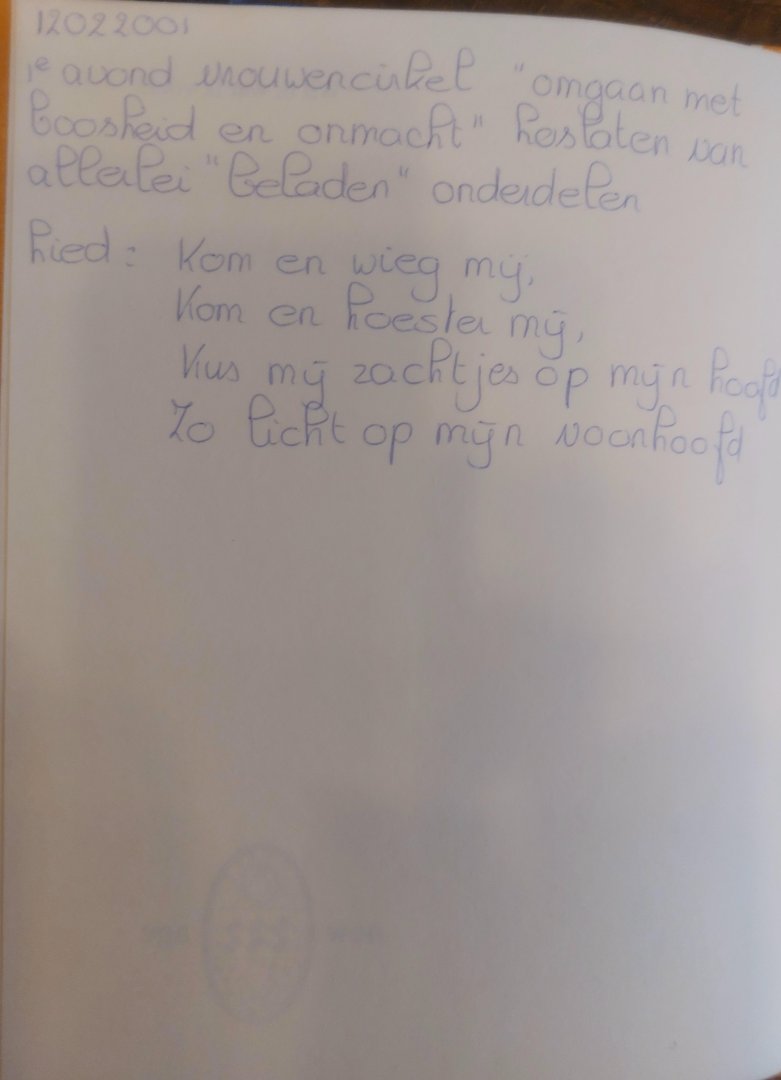 12022001
1e avond vrouwencirkel "omgaan met
boosheid en onmacht" loslaten van
allerlei "beladen" onderdelen
Lied: Kom en wieg mij,
Kom en koester mij,
Kus mij zachtjes op mijn hoofd
Zo licht op mijn voorhoofd